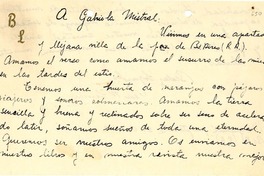 B
L
A Gabriela Mistral.
Vivimos en una apartada
y lejana villa de la de Bs Aires (R.A.).
Amamos el verso como amamos el susurro de las mieses
en las tardes del estío.
Tenemos una huerta de naranjos con pájaros
viajeros y amamos la tierra
sencilla y buena y reclinados sobre su seno de acelerado
latir, soñamos sueños de toda una eternidad.
Queremos ser vuestros amigos. Os enviamos en
nuestro libro y en nuestra revista nuestra